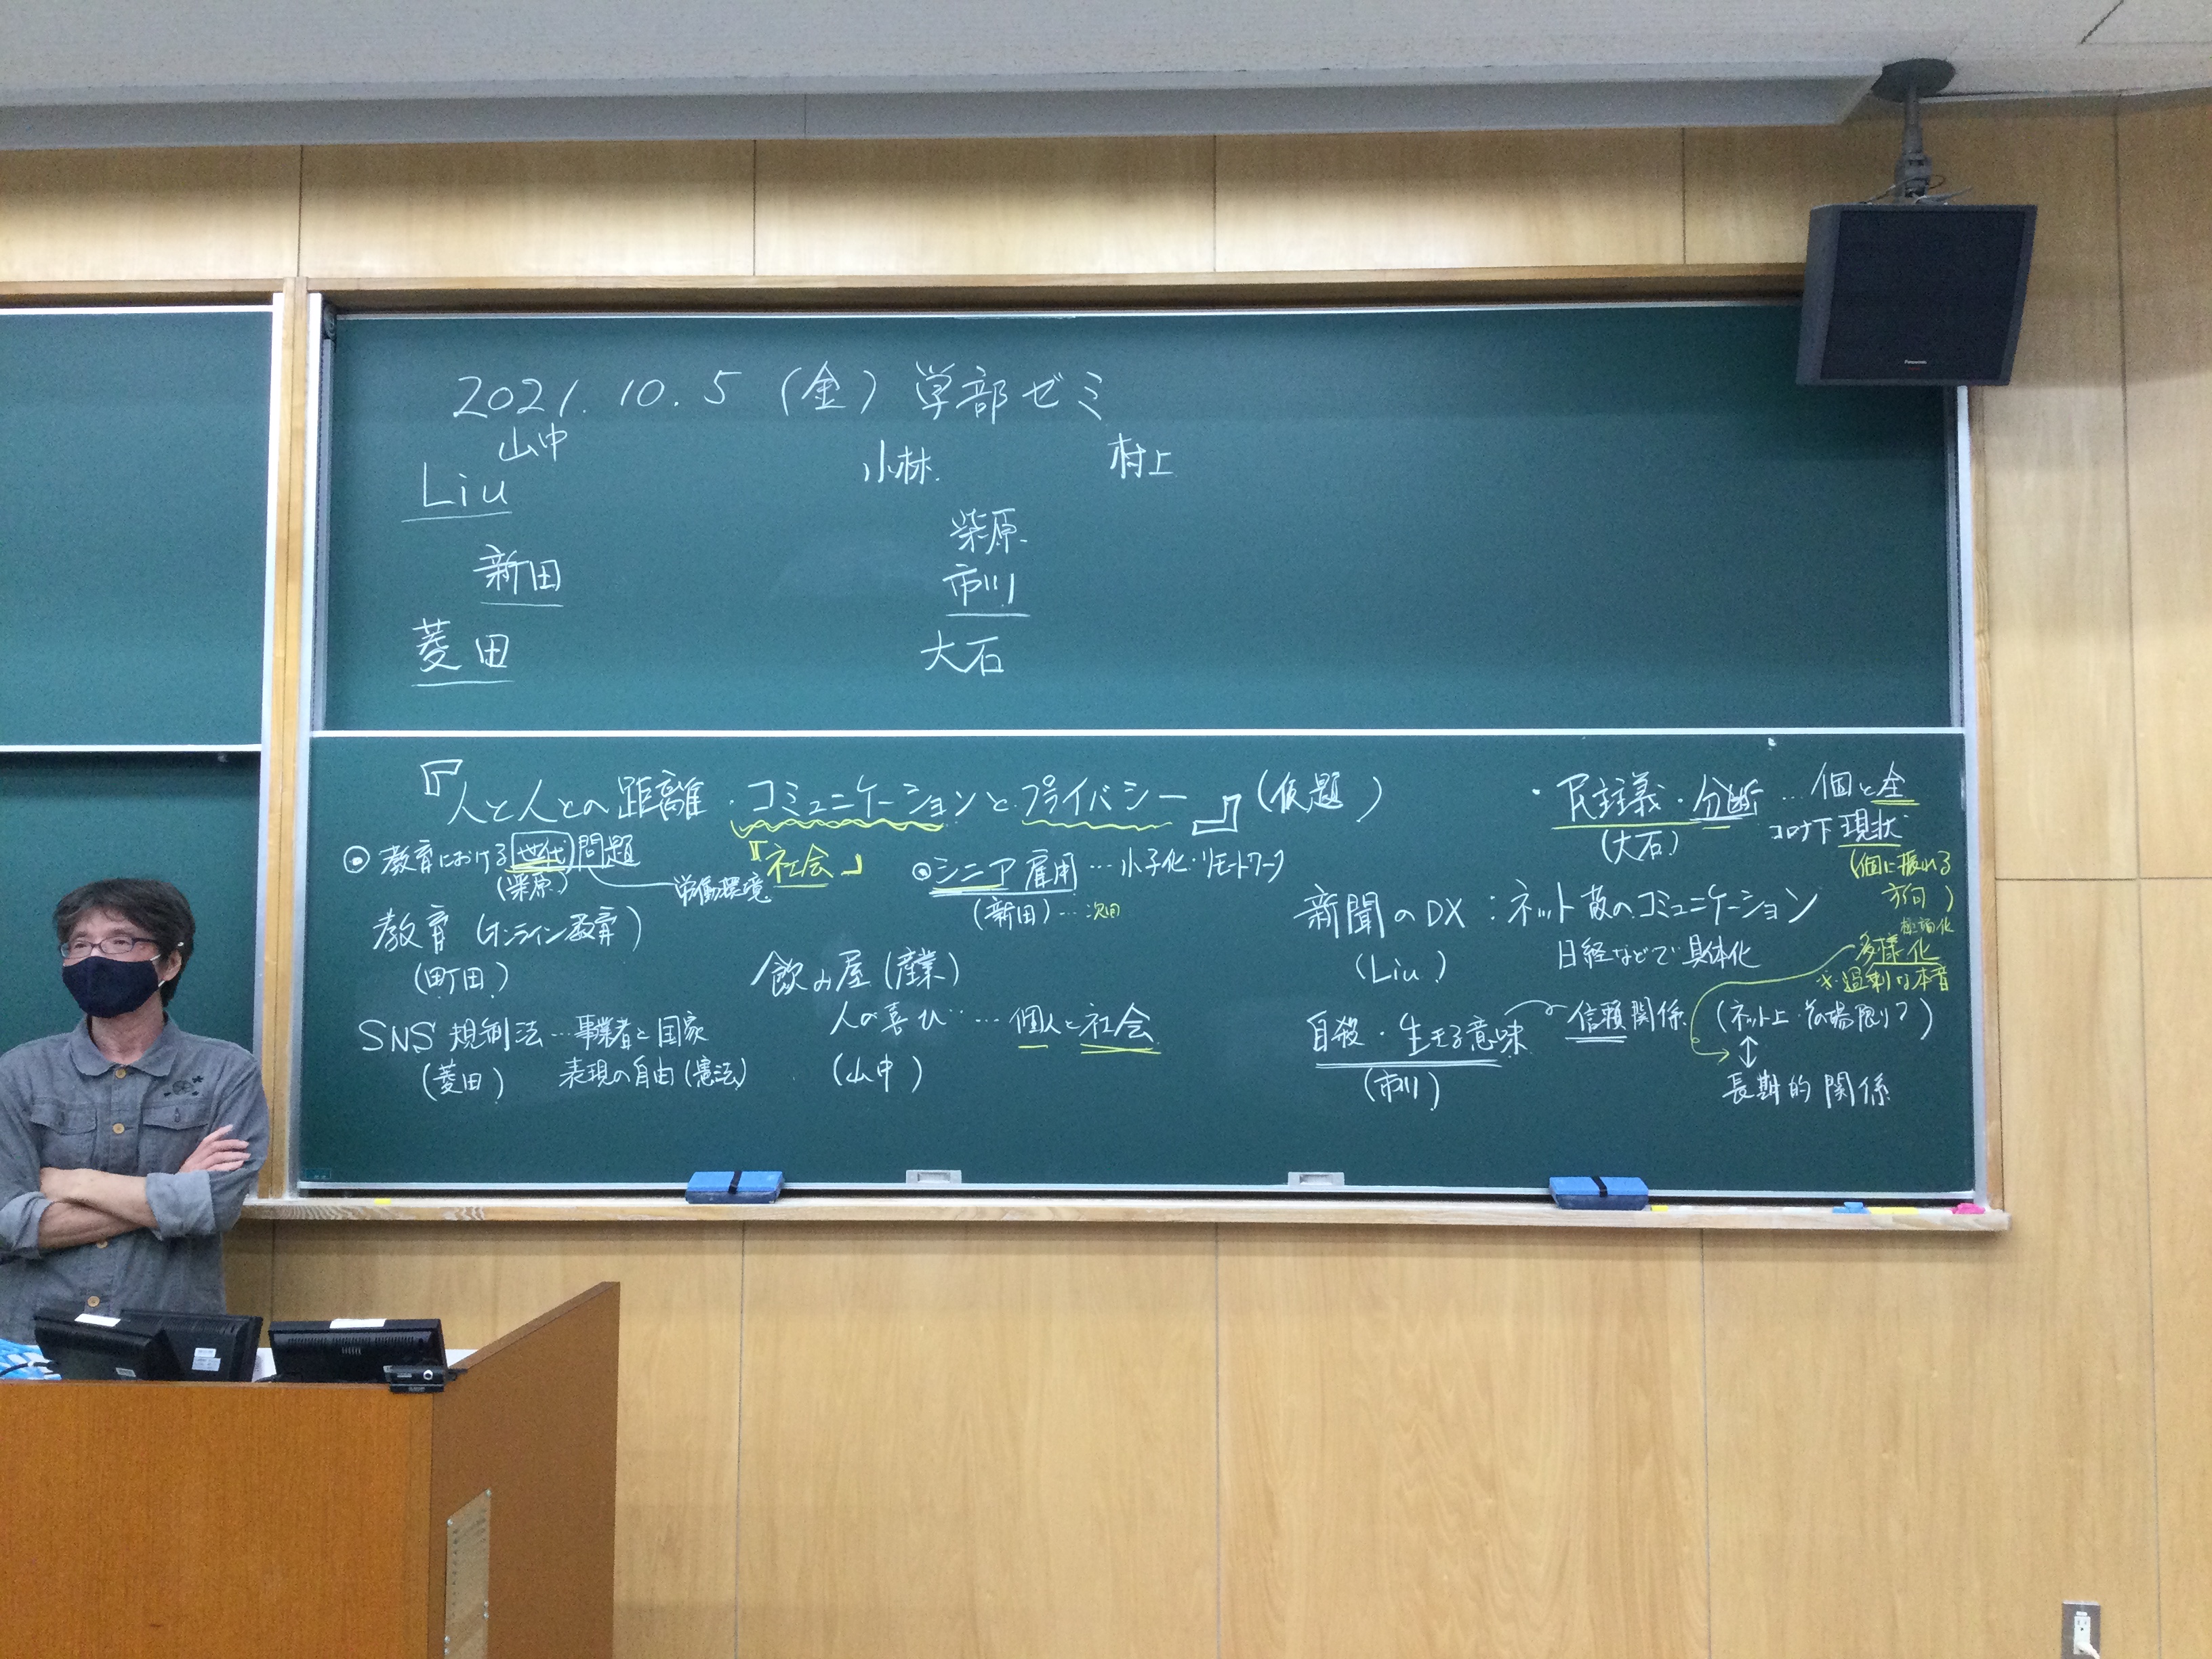 2021.10.5 (金) 学部ゼミ
山中
小林
村上
Liu
柴原
新田
市川
菱田
大石
『人と人との距離・コミュニケーションとプライバシー』(仮題)
『社会』
◉ 教育における世代問題
(柴原)
労働環境
教育 (オンライン教育)
(町田)
SNS 規制法…事業者と国家
(菱田) 表現の自由(憲法)
◉シニア雇用…少子化・リモートワーク
(新田)…次回
飲み屋(産業)
人の喜び…個人と社会
(山中)
・民主義・分断…個と全
(大石)
コロナ下現状
(個に振れる
方向)
極端化
多様化
※過剰な本音
新聞のDX:ネット敵のコミュニケーション
(Liu) 日経などで具体化
自殺・生きる意味
(市川)
信頼関係
(ネット上・その場限り?)
↕
長期的関係
Panasonic